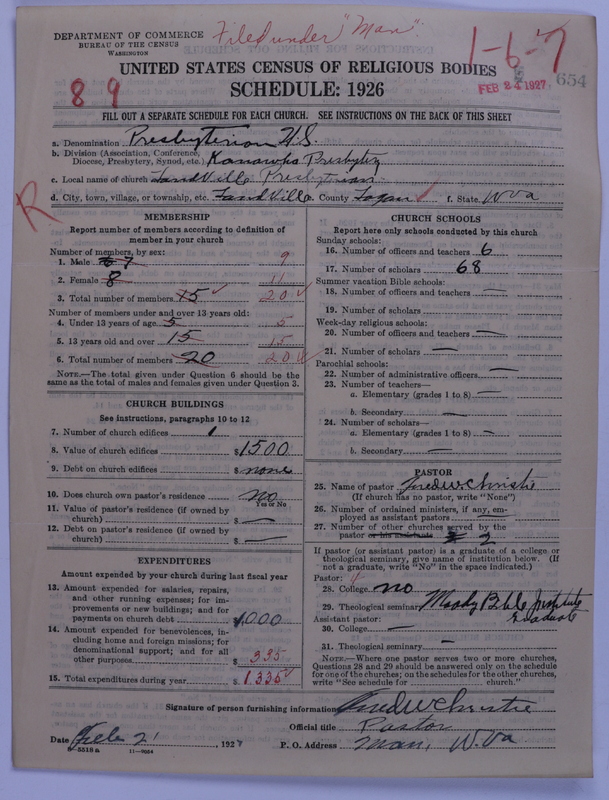 DEPARTMENT OF COMMERCE
BUREAU OF THE CENSUS
WASHINGTON
Filed under "Man".
1-6-7
UNITED STATES CENSUS OF RELIGIOUS BODIES
SCHEDULE: 1926
FEB 24 1927
654
8 9
FILL OUT A SEPARATE SCHEDULE FOR EACH CHURCH. SEE INSTRUCTIONS ON THE BACK OF THIS SHEET
a. Denomination Presbyterian U.S.
b. Division (Association, Conference, Diocese, Presbytery, Synod, etc.) Kanawha Presbytery
c. Local name of church Landville Presbyterian
d. City, town, village, or township, etc. Landville e. County Logan f. State W Va
R
MEMBERSHIP
Report number of members according to definition of member in your church
Number of members, by sex:
1. Male 7 9
2. Female 8 11
3. Total number of members 15 20
Number of members under and over 13 years old:
4. Under 13 years of age 5 5
5. 13 years old and over 15 15
6. Total number of members 20 20
NOTE.—The total given under Question 6 should be the same as the total of males and females given under Question 3.
CHURCH BUILDINGS
See instructions, paragraphs 10 to 12
7. Number of church edifices 1
8. Value of church edifices $1500
9. Debt on church edifices $none
10. Does church own pastor's residence no
Yes or No
11. Value of pastor's residence (if owned by church) $ —
12. Debt on pastor's residence (if owned by church) $ —
EXPENDITURES
Amount expended by your church during last fiscal year
13. Amount expended for salaries, repairs, and other running expenses; for improvements or new buildings; and for payments on church debt 1000
14. Amount expended for benevolences, including home and foreign missions; for denominational support; and for all other purposes $ 335
15. Total expenditures during year $1335
CHURCH SCHOOLS
Report here only schools conducted by this church
Sunday schools:
16. Number of officers and teachers 6
17. Number of scholars 68
Summer vacation Bible schools:
18. Number of officers and teachers —
19. Number of scholars
Week-day religious schools:
20. Number of officers and teachers —
21. Number of scholars —
Parochial schools:
22. Number of administrative officers —
23. Number of teachers—
a. Elementary (grades 1 to 8) —
b. Secondary —
24. Number of scholars—
a. Elementary (grades 1 to 8) —
b. Secondary —
PASTOR
25. Name of pastor Fred W Christie
(If church has no pastor, write "None")
26. Number of ordained ministers, if any, employed as assistant pastors —
27. Number of other churches served by the pastor or his assistants 2
If pastor (or assistant pastor) is a graduate of a college or theological seminary, give name of institution below. (If not a graduate, write "No" in the space indicated.)
Pastor:
28. College no
29. Theological seminary Moody Bible Institute Graduate
Assistant pastor:
30. College —
31. Theological seminary —
NOTE.—Where one pastor serves two or more churches, Questions 28 and 29 should be answered only on the schedule for one of the churches; on the schedules for the other churches, write "See schedule for church."
Signature of person furnishing information Fred W Christie
Official title Pastor
Date Feb 21, 1927 P. O. Address Man, W. Va
8-5518a 11-9054